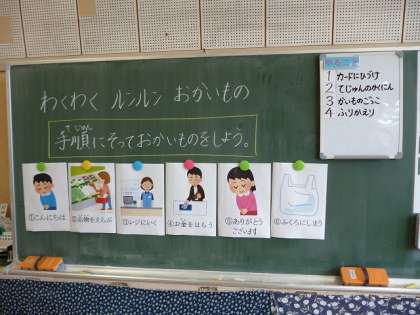 わくわく ルンルン おかいもの
てじゅん
手順にそっておかいものをしよう。
①こんにちは
②品物をえらぶ
③レジにいく
④お金をはらう
⑤ありがとう
ございます
⑥ふくろにしまう
1 カードにひづけ
2 てじゅんのかくにん
3 かいものごっこ
4 ふりかえり